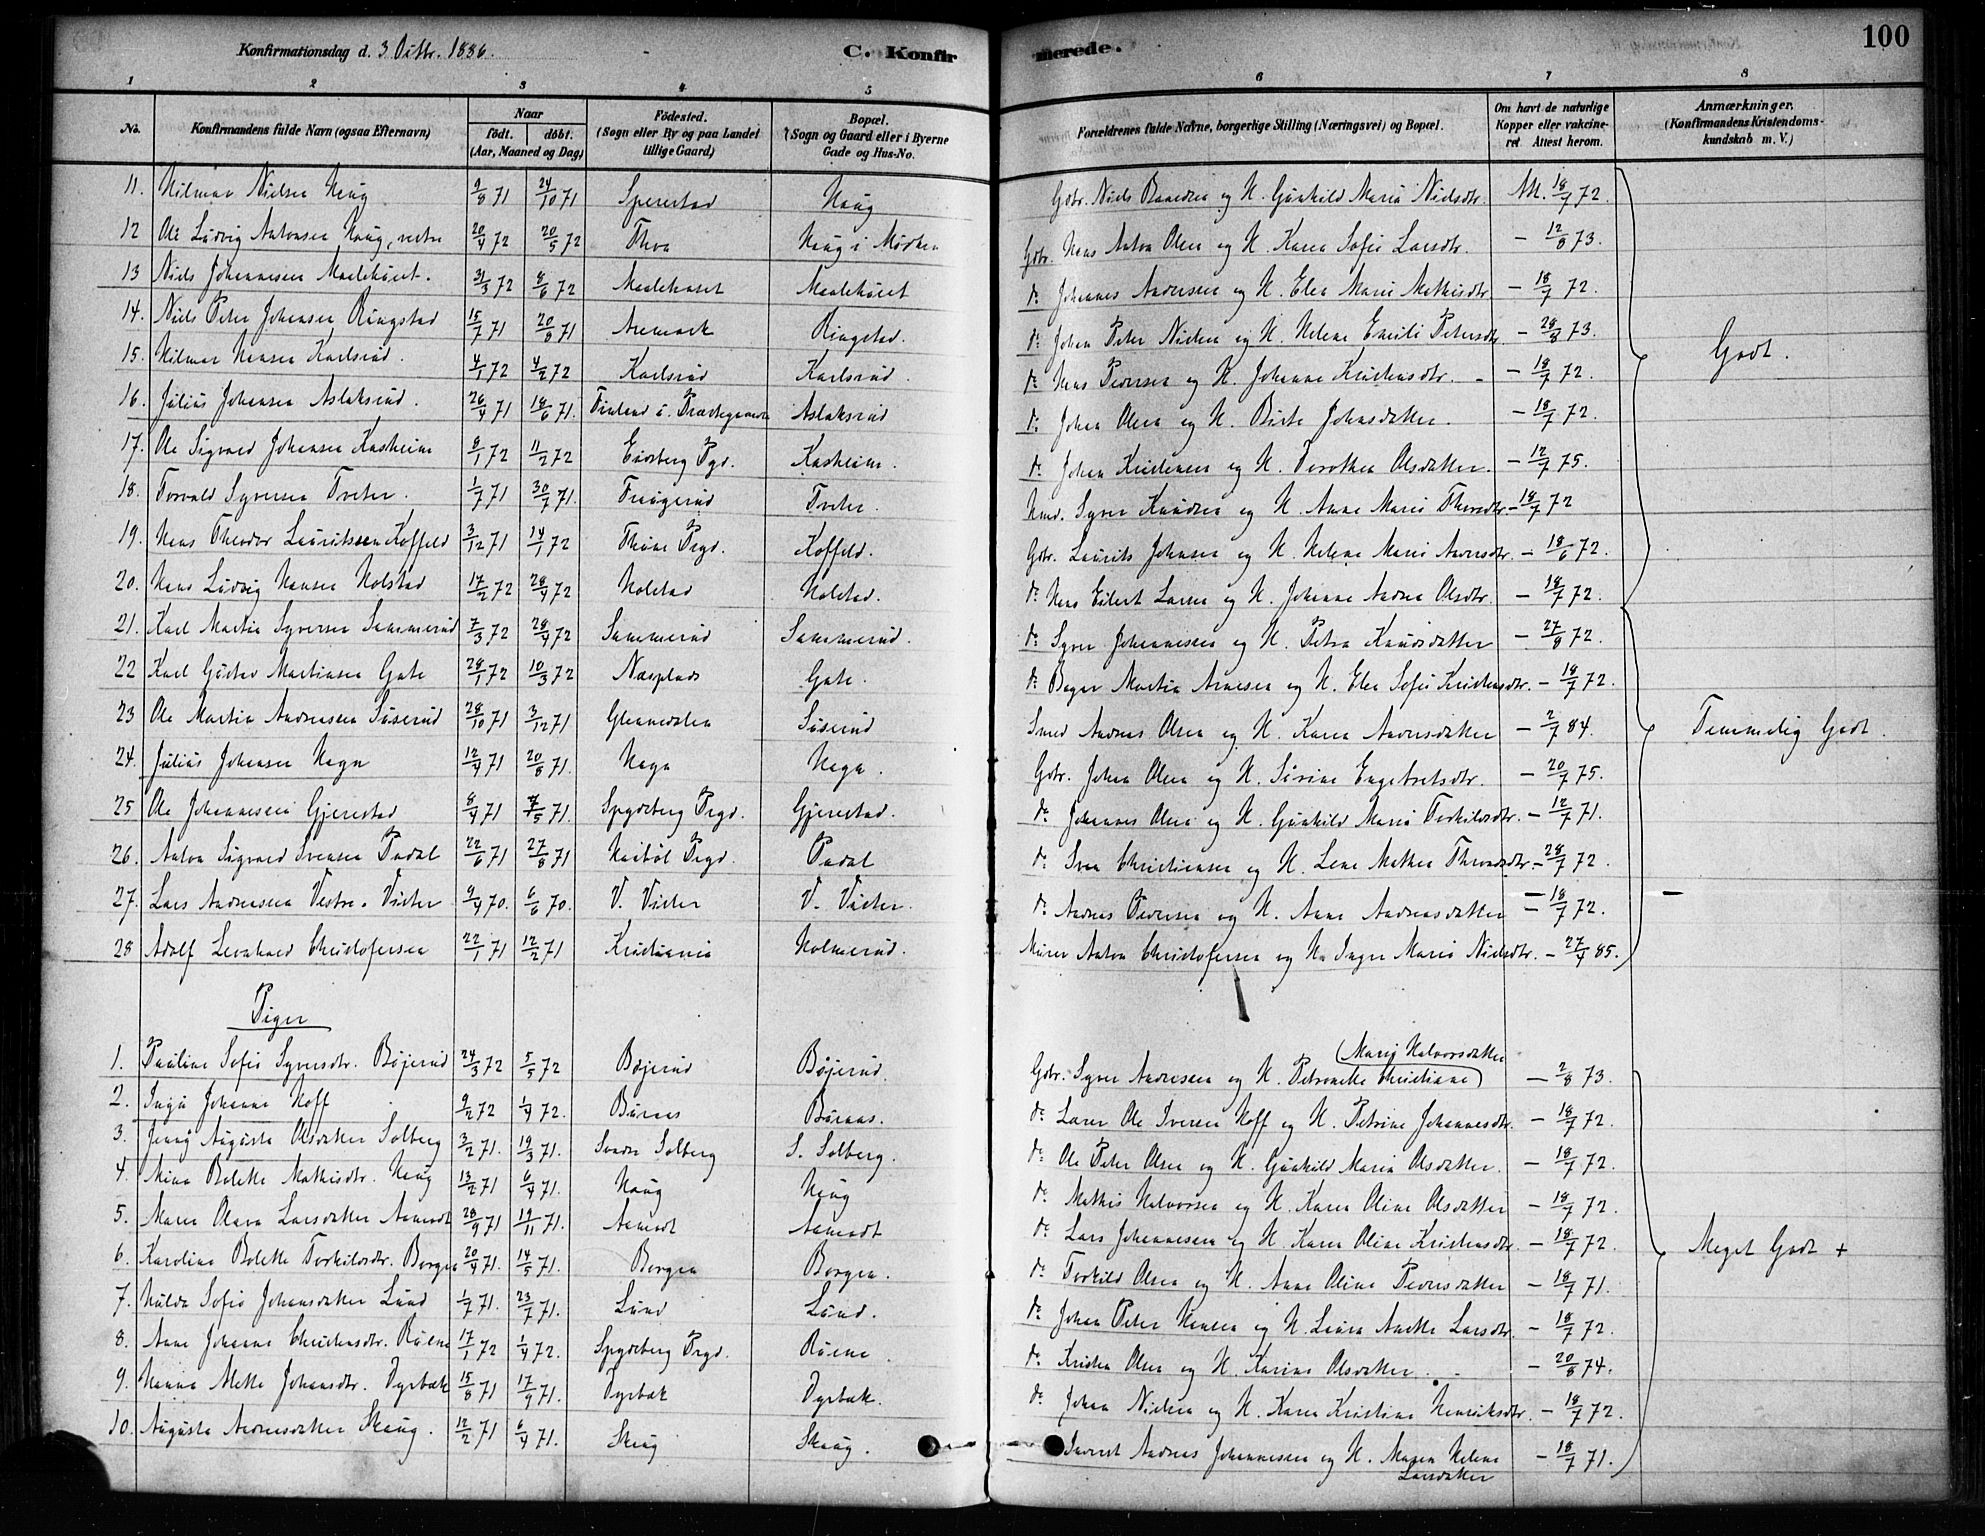 Konfirmationsdag d. 3 Octbr. 1886.
C. Konfirmerede.
100
1 2 3 4 5 6 7 8
No.
Konfirmandens fulde Navn (ogsaa Efternavn)
Naar
født. døbt.
(Aar, Maaned og Dag)
Fødested.
(Sogn eller By og paa Landet
tillige Gaard)
Bopæl.
(Sogn og Gaard eller i Byerne
Gade og Hus-No.
Forældrenes fulde Navne, borgerlige Stilling (Næringsvei) og Bopæl.
Om havt de naturlige
Kopper eller vakcine-
ret. Attest herom.
Anmærkninger.
(Konfirmandens Kristendoms-
kundskab m. V.)
11. Hilmar Nielsen Haug 9/8 71 24/10 71 Sperestad Haug Gbr. Niels Hansen og H. Gunhild Maria Nielsdtr. Att. 18/7 72.
12 Ole Ludvig Antonsen Haug, vestre 20/4 72 20/5 72 Thon Haug i Mørken Gbr. Hans Anton Olsen og H. Karen Sofie Larsdtr. – 12/8 73.
13 Niels Johannesen Maalehuset. 31/3 72 8/6 72 Maalehuset Maalehuset do Johannes Andersen og H. Elen Marie Mathisdtr – 18/7 72.
14. Niels Peter Johansen Ringstad 15/7 71 20/8 71 Aremark Ringstad. do Johan Peter Nielsen og H. Helene Emilie Petersdtr – 28/8 73.
15. Hilmar Hansen Karlsrud. 4/1 72 4/2 72 Karlsrud Karlsrud. do Hans Pedersen og H. Johanne Kristensdtr. – 18/7 72.
16. Julius Johansen Aslaksrud. 26/4 71 18/6 71. Aslaksrud do Johan Olsen og H. Birte Johnsdatter. – 18/7 72.
17. Ole Sigvard Johansen Kasheim 8/1 72 11/2 72 Eidsberg Pgd. Kasheim. do Johan Kristensen og H. Dorothea Olsdatter. – 12/7 75.
18. Torvald Syversen Tveter. 1/7 71 30/7 71. Trøgerud Tveter. Hmd. Syver Knudsen og H. Anne Marie Thoresdtr – 18/7 72
19. Hans Theodor Lauritssen Koffeld 3/12 71 14/1 72 Thune Prgd. Koffeld. Gbr. Laurits Johnsen og H. Helene Marie Andersdtr. – 18/6 72.
20. Hans Ludvig Hansen Holstad 17/2 72 28/4 72 Holstad Holstad. do Hans Eilert Larsen og H. Johanne Andrea Olsdtr. – 18/7 72.
21. Karl Martin Syversen Sammerud 7/3 72 28/4 72 Sammerud Sammerud. do Syver Johannesen og H. Petra Knudsdatter – 27/8 72.
22 Karl Gustav Martinsen Gate 28/1 72 10/3 72 Næsplads Gate. do Bager Martin Arnesen og H. Elen Sofie Kristensdtr. – 18/7 72.
23 Ole Martin Andreassen Suserud 28/10 71 3/12 71 Glennedalen Suserud Smed Andreas Olsen og H. Karen Andersdatter – 2/7 84.
24. Julius Johansen Haga 12/4 71 20/8 71. Haga Haga. Gbr. Johan Olsen og H. Sirine Engebretsdtr. – 20/7 75.
25 Ole Johannesen Gjerestad 8/4 71 7/5 71. Spydeberg Prgd. Gjerestad. do Johannes Olsen og H. Gunhild Marie Torkildsdtr. – 12/7 71.
26. Anton Sigvard Svensen Padal 22/6 71 27/8 71 Haabøl Prgd. Padal do Sven Christiansen og H. Lene Mathea Throndsdtr. – 28/7 72
27. Lars Andreassen Vestre Vister 9/4 70. 6/6 70. V. Vister V. Vister. do Andreas Pedersen og H. Anne Andreasdatter – 18/7 72. –
28 Adolf Leonhard Christofersen 22/1 71 12/2 71 Kristiania Holmerud. Murer Anton Christofersen og H. Inger Marie Nielsdtr. – 27/4 85.
Godt.
Temmelig Godt.
Piger
1. Pauline Sofie Syversdtr. Bøjerud 24/3 72 5/5 72 Bøjerud Bøjerud. Gbr. Syver Andersen og H. Petronelle Christiane (Marie Halvorsdatter) – 2/8 73.
2. Inga Johanne Hoff 9/2 72 1/4 72. Burnas Burnas. do Larer Ole Iversen Hoff og H. Petrine Johannesdtr. – 18/7 72.
3. Jenny Augusta Olsdatter Solberg 3/2 71. 19/3 71. Søndre Solberg S. Solberg. do Ole Peter Olsen og H. Gunhild Maria Olsdatter. – 18/7 72.
4. Mina Bolette Mathisdtr. Haug 13/2 71 6/4 71. Haug Haug do Mathis Halvorsen og H. Karen Oline Olsdatter – 18/7 72.
5. Maren Olava Larsdatter Aamodt 28/9 71 19/11 71. Aamodt Aamodt do Lars Johannesen og H. Karen Oline Kristensdtr. – 18/7 72.
6. Karoline Bolette Torkildsdtr. Borgen 20/4 71. 14/5 71. Borgen Borgen. do Torkild Olsen og H. Anne Oline Pedersdatter – 18/7 71.
7. Hulda Sofie Johansdatter Lund 1/7 71. 23/7 71. Lund Lund. do Johan Peter Hansen og H. Laura Anette Larsdtr. – 18/7 72.
8. Anne Johanne Christensdtr. Ruene 17/1 72 1/4 72. Spydeberg Prgd. Ruene do Kristen Olsen og H. Karine Olsdatter. – 20/8 74.
9. Hanna Mette Johansdtr. Dyrbæk 15/8 71 17/9 71. Dyrbæk Dyrbæk. do Johan Nielsen og H. Karen Kristine Henriksdtr. – 18/7 72.
10. Augusta Andreasdatter Skaug. 12/2 71 6/4 71. Skaug Skaug. Andreas Johannessen og H. Maren Helene Larsdatter – 18/7 71.
Meget Godt +